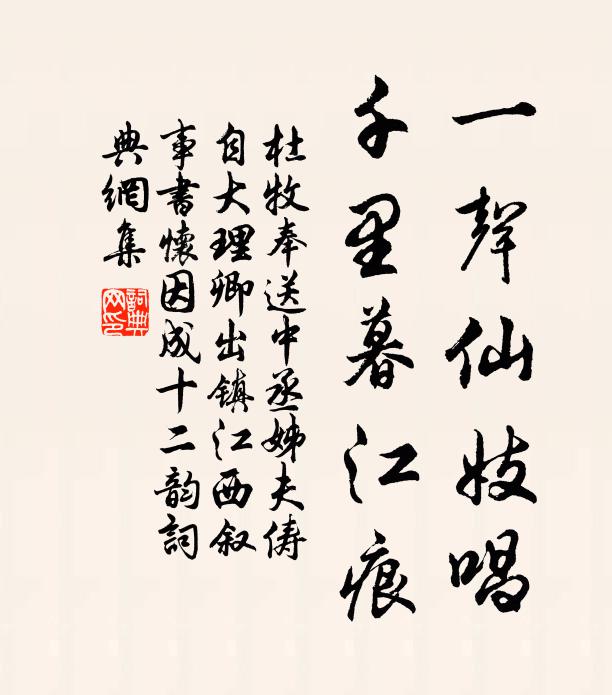 一聲仙妓唱
千里暮江痕
杜牧奉送中丞姊夫俦
自大理卿出鎮江西叙
事書懐因成十二韵詞
典網集
詞典
网印